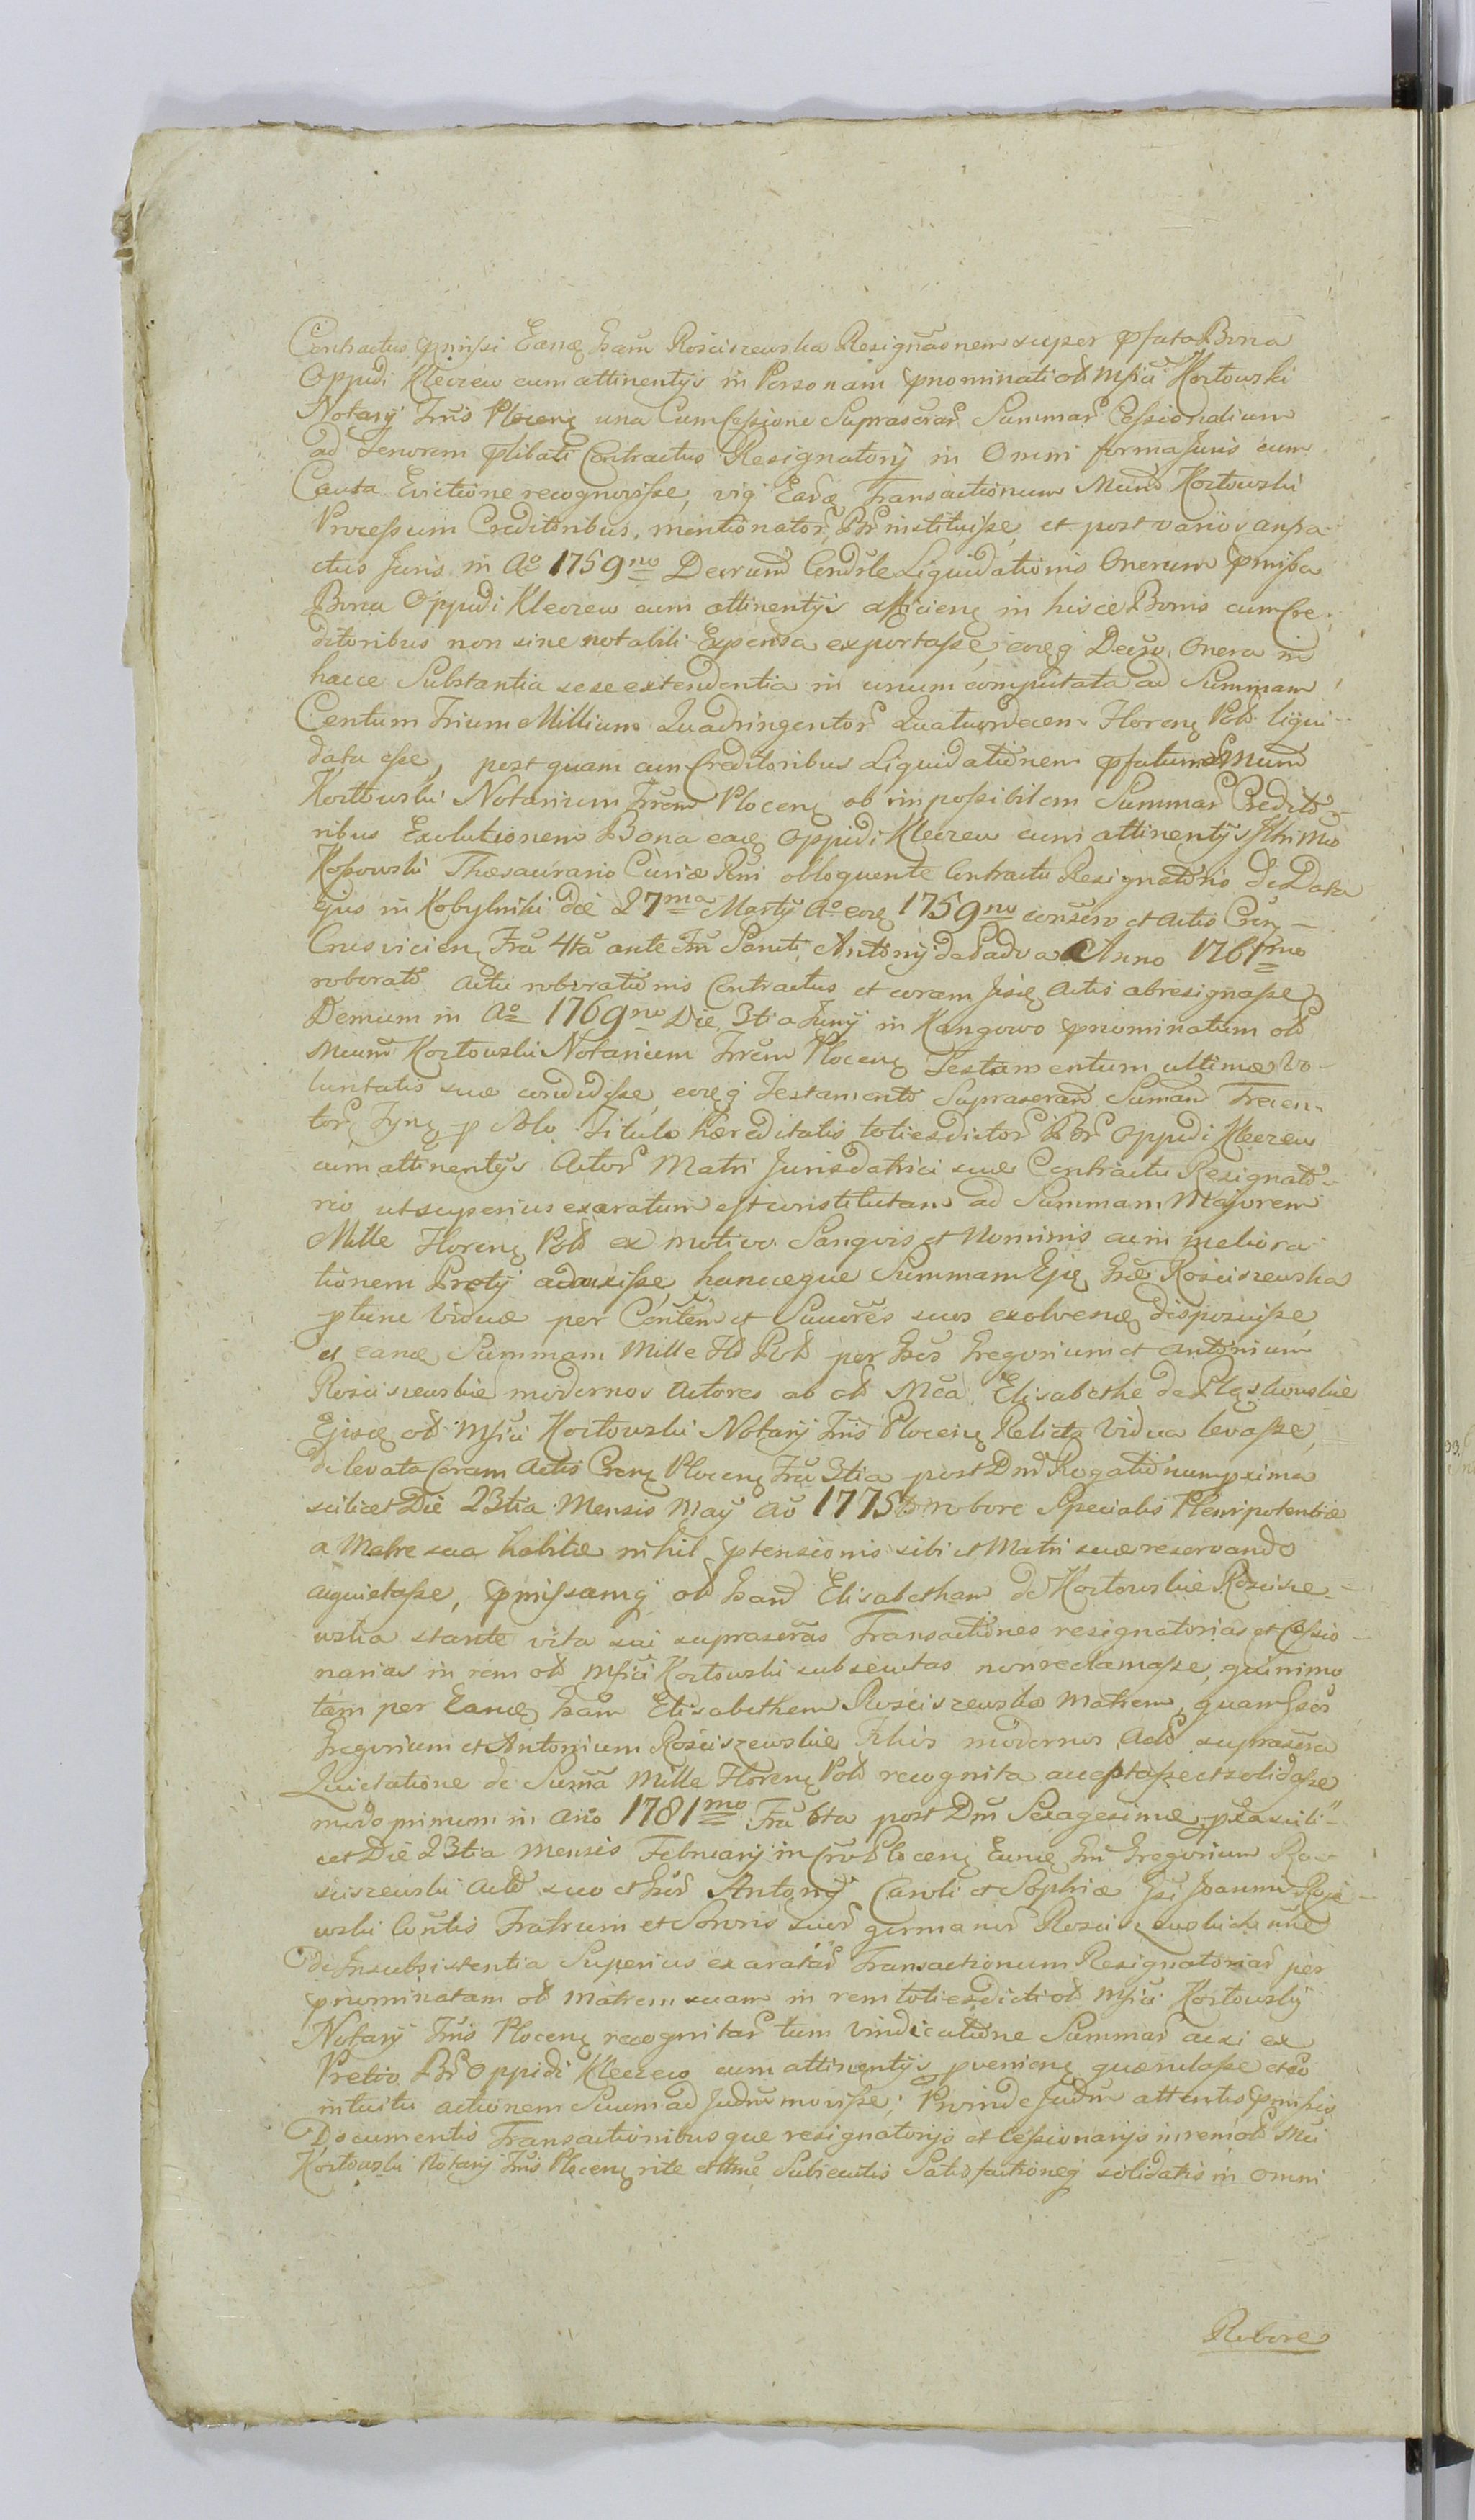 Contractus pmissi Eandę Gsam Rosciszewska Resignãonem super pfata Bona
Oppidi Kleczew cum attinentijs in Personam pnominati olt Mfici Kozłowski
Notarij Trris Plocenę una Cum Cessione Suprascrar Summar Cessionalium
ad Tenorem plibati Contractus Resignatorij in Omni forma Juris cum
Cauta Evictione recognovisse, vig Earđę Transactionum Mcund Kozłowski
Processum Creditoribus, mentionator Br instituisse, et post varios anfra-
ctus Juris in Aº 1759no Decrum Condscle Liquidationis Onerum pmissa
Bona Oppidi Kleczew cum attinentijs afficienę in hisce Bonis cum Cre-
ditoribus non sine notabili Expensa exportasse, eoręg Decro Onera in
hacce Substantia sese extendentia in unum computata ad Summam
Centum Trium Millium Quadringentor Quatuordecem Florenę Pol liqui-
data esse, post quam cum Creditoribus Liquidationem pfatum Mcund
Kozłowski Notarium Trrem Plocenę ob impossibilem Summar Credito-
ribus Exolutionem Bona eaę Oppidi Kleczew cum attinentijs Illri Mco
Kossowski Thesaurario Curiæ Rni obloquente Contractu Resignatorio de Data
ejus in Kobylniki die 27ma Martij Aº eoę 1759no conscro et Actis Cren
Crusvicienę Fra 4ta ante Fm Sancti Antonij de Padva Anno 1761mo
roborato Actu roborationis Contractus et coram Jisdę Actis abresignasse
Demum in Aº 1769no Die 3tia Junij in Kangowo pnominatum olt
Mcum Kozłowski Notarium Trrem Plocenę Testamentum ultimæ Vo-
luntatis suæ condidisse, eoręg Testamento Suprascram Sumam Trecen-
tor Tynę p Solo Titulo Hæreditatis totiesdictor Br Oppidi Kleczew
cum attinentijs Actor Matri Jurisdatrici suæ Contractu Resignato-
rio ut superius exaratum est constitutam ad Summam Majorem
Mille Florenę Pol ex motivo Sangvis et Nominis cum meliora
tionem Pretij adauxisse, hancceque Summam Ejdę Gsæ Rościszewska
ptunc Viduæ per Conten et Succres suos exolvendę disposuisse,
et eandę Summam Mille Fl Pol per Gsos Gregorium et Antonium
Rosciszewskie modernos Actores ab olt Mca Elisabethe de Pląskowskie
Ejusdę olt Mfici Kozłowski Notarij Trris Plocenę Relicta Vidua levasse,
de levata Coram Actis Crenę Plocenę Fra 3tia post Dm Rogationum pxima
scilicet Die 23tia Mensis Maij Aº 1775to robore Specialis Plenipotentiæ
a Matre sua habitæ nihil ptensionis sibi et Matri suæ reservando
aquietasse, pmissamg olt Gsam Elisabetham de Kozłowskie Roscisze-
wska stante vita sui suprascras Transactiones resignatorias et Cessio-
narias in rem olt Mfici Kozłowski subsecutas non reclamasse, quinimo
tam per Eandę Gsam Elisabetham Rosciszewska Matrem, quam Gsos
Gregorium et Antonium Rosciszewskie Filios modernos Act suprascra
Quietatione de Suma Mille Florenę Pol recognita acceptasse et solidasse
modo primum in Ano 1781mo Fra 6ta post Dm Sexagesimæ pxa scili-
cet Die 23tia Mensis Februarij in Cro Plocenę Eundę Gm Gregorium Ro-
sciszewski Act suo et Gsor Antonij Caroli et Sophiæ Gsi Joannis Rys
wski Contis Fratrum et Sororis suor germanor Rosciszewskich nne
de Insubsistentia Superius exaratar Transactionum Resignatoriar per
pnominatam olt Matrem suam in rem totiesdicti olt Mfici Kozłowskij
Notarij Trris Plocenę recognitar tum Vindicatione Summar acsi ex
Pretio Br Oppidi Kleczew cum attinentijs pvenienę querulasse et eo
intuitu actionem Suam ad Judm movisse; Proinde Judm attentis pmissis
Documentis Transactionibusque resignatorijs et Cessionarijs in rem olt Mci
Kozłowski Notarij Trris Plocenę rite et ltme Subsecutis Satisfactioneg solidatis in Omni
Robore